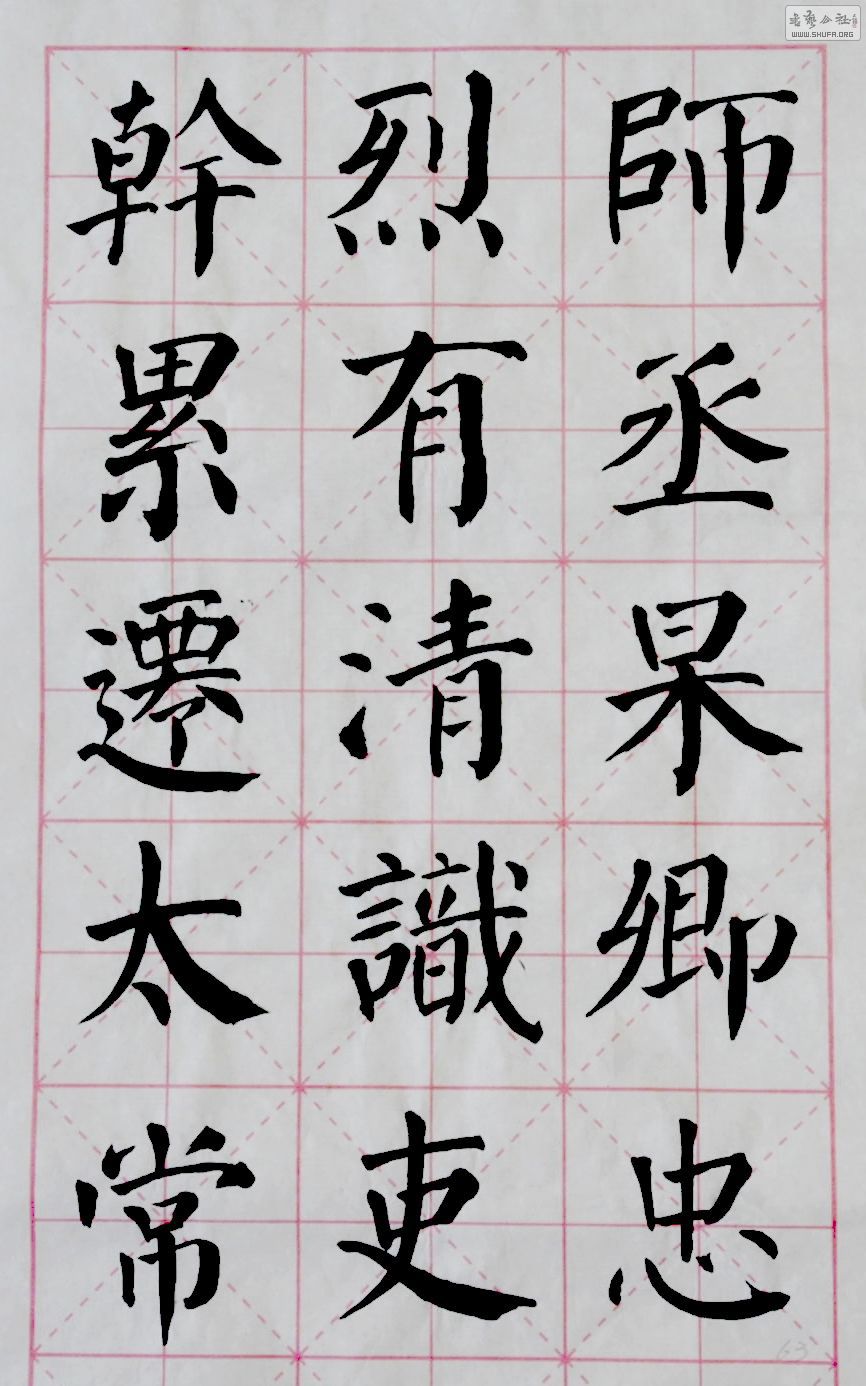 師丞杲卿忠
烈有清識吏
幹累遷太常
書藝公社
WWW.SHUFA.ORG
63